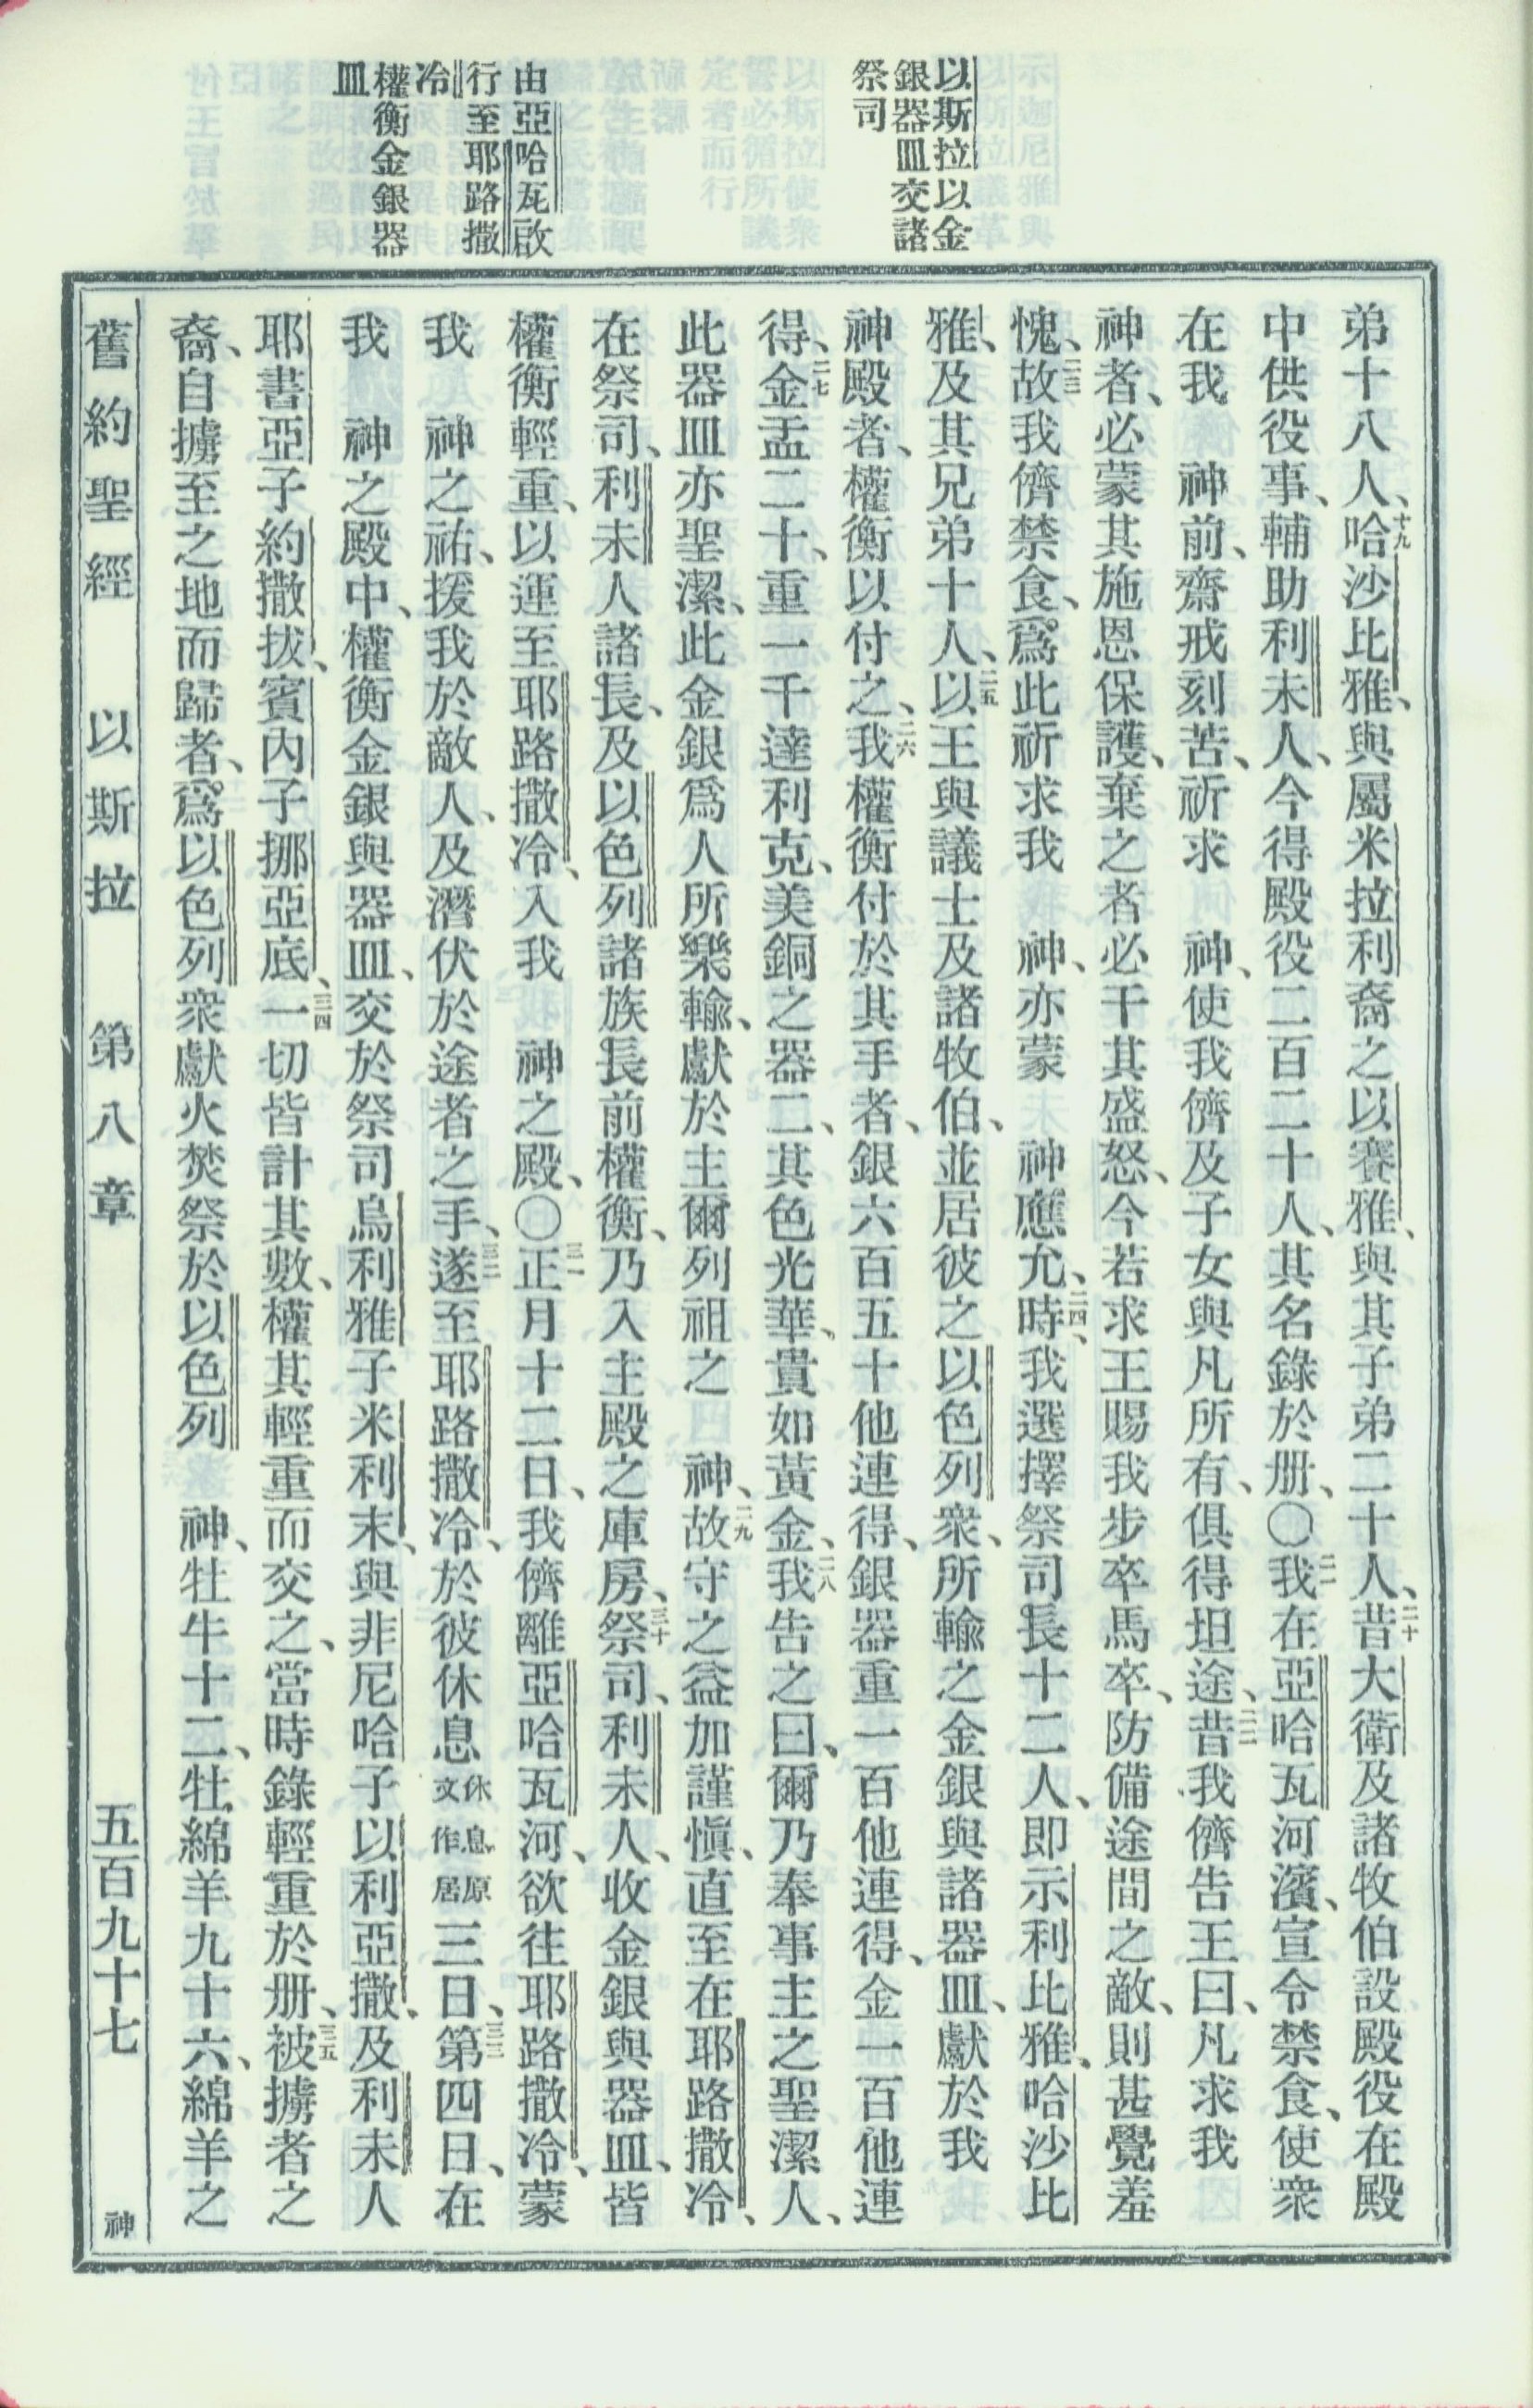 以斯拉以金
銀器皿交諸
祭司
由亞哈瓦啟
行至耶路撒
冷
權衡金銀器
皿
弟十八人、十九哈沙比雅、與屬米拉利裔之以賽雅、與其子弟二十人、二十昔大衛及諸牧伯設殿役在殿
中供役事、輔助利未人、今得殿役二百二十人、其名錄於册、〇二一我在亞哈瓦河濱、宣令禁食、使衆
在我　神前、齋戒刻苦、祈求　神、使我儕及子女與凡所有、俱得坦途、二二昔我儕告王曰、凡求我
神者、必蒙其施恩保護、棄之者必干其盛怒、今若求王賜我步卒馬卒、防備途間之敵、則甚覺羞
愧、二三故我儕禁食、爲此祈求我　神、亦蒙　神應允、二四時、我選擇祭司長十二人、即示利比雅、哈沙比
雅、及其兄弟十人、二五以王與議士及諸牧伯、並居彼之以色列衆、所輸之金銀與諸器皿、獻於我
神殿者、權衡以付之、二六我權衡付於其手者、銀六百五十他連得、銀器重一百他連得、金一百他連
得、二七金盂二十、重一千達利克、美銅之器二、其色光華、貴如黃金、二八我告之曰、爾乃奉事主之聖潔人、
此器皿亦聖潔、此金銀爲人所樂輸、獻於主爾列祖之　神、二九故守之益加謹愼、直至在耶路撒冷、
在祭司、利未人諸長、及以色列諸族長前權衡、乃入主殿之庫房、三十祭司、利未人、收金銀與器皿、皆
權衡輕重、以運至耶路撒冷、入我　神之殿、〇三一正月十二日、我儕離亞哈瓦河、欲往耶路撒冷、蒙
我　神之祐、援我於敵人、及潛伏於途者之手、三二遂至耶路撒冷、於彼休息休息原文作居三日、三三第四日、在
我　神之殿中、權衡金銀與器皿、交於祭司烏利雅子米利末、與非尼哈子以利亞撒、及利未人
耶書亞子約撒拔、賓內子挪亞底、三四一切皆計其數、權其輕重而交之、當時錄輕重於册、三五被擄者之
裔、自擄至之地而歸者、爲以色列衆獻火焚祭於以色列　神、牡牛十二、牡綿羊九十六、綿羊之
舊約聖經　以斯拉　第八章　五百九十七　神